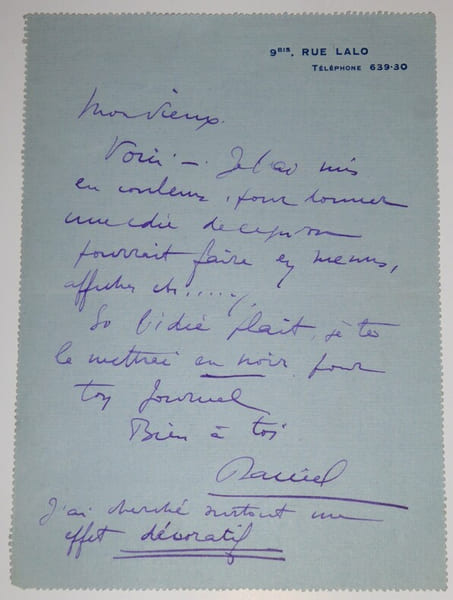 9BIS. RUE LALO
TÉLÉPHONE 639-30
Mon Vieux.
Voici — Je l'ai mis
en couleurs, pour donner
une idée de ce qu'on
pourrait faire en menus,
affiches etc.....
Si l'idée plait, je te
le mettrai en noir pour
ton Journal
Bien à toi
J'ai cherché surtout un
effet décoratif